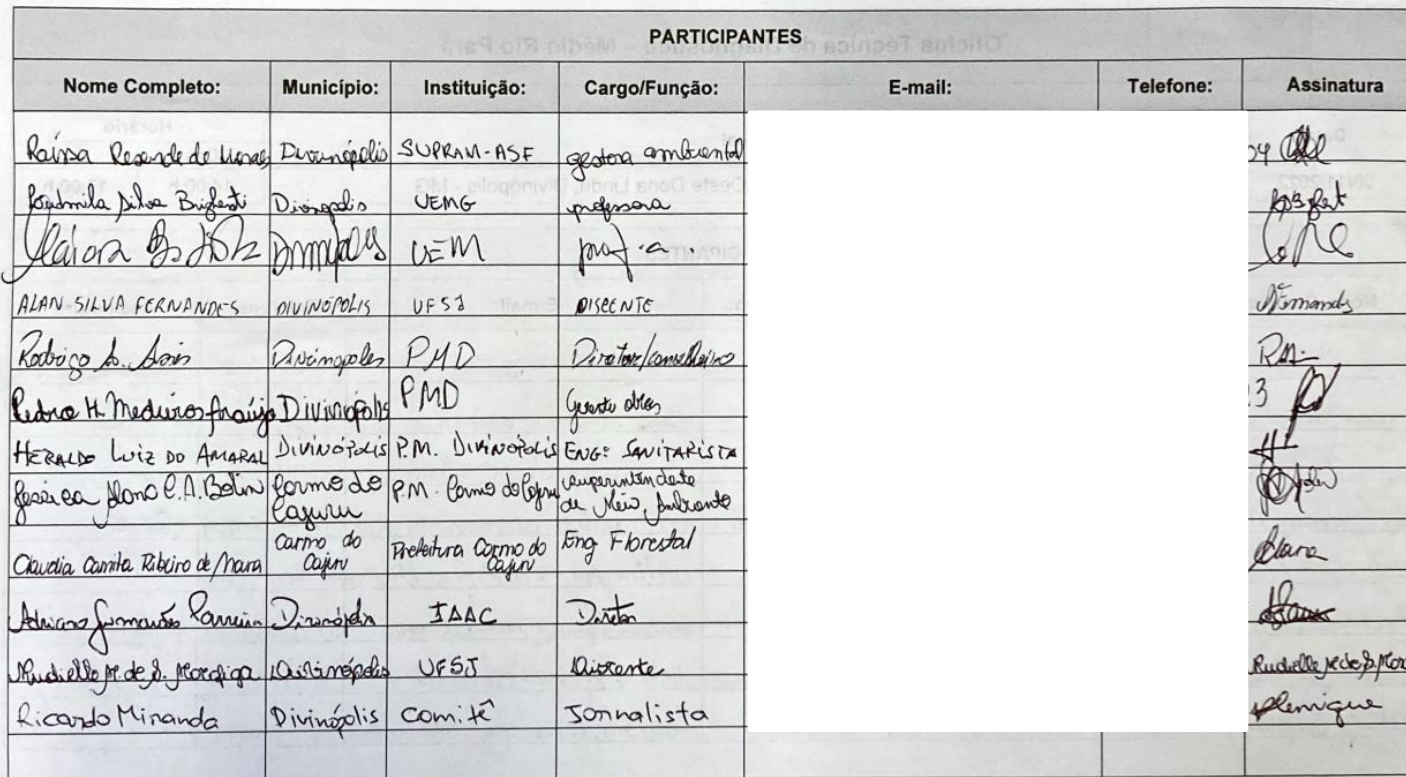 PARTICIPANTES
Nome Completo: Município: Instituição: Cargo/Função: E-mail: Telefone: Assinatura
Raíssa Resende de Moraes Divinópolis SUPRAM-ASF gestora ambiental
Ludmila Silva Brighenti Divinópolis UEMG professora
UEM prof.a
ALAN SILVA FERNANDES DIVINÓPOLIS UFSJ DISCENTE AFernandes
Rodrigo Divinópoles PMD Diretor/conselheiro
Pedro H. Medeiros Araújo Divinópolis PMD 13
HERALDO LUIZ DO AMARAL DIVINÓPOLIS P.M. DIVINÓPOLIS ENGº SANITARISTA
Jessica C.A. Carmo do Cajuru P.M. Carmo do Cajuru superintendente de Meio Ambiente
Claudia Camila Ribeiro de Carmo do Cajuru Prefeitura Carmo do Cajuru Eng Florestal
Adriano Guimarães Parreira Divinópolis IAAC Diretor
Rudielle de S. Divinópolis UFSJ Discente Rudielle
Ricardo Miranda Divinópolis Comitê Jornalista Henrique